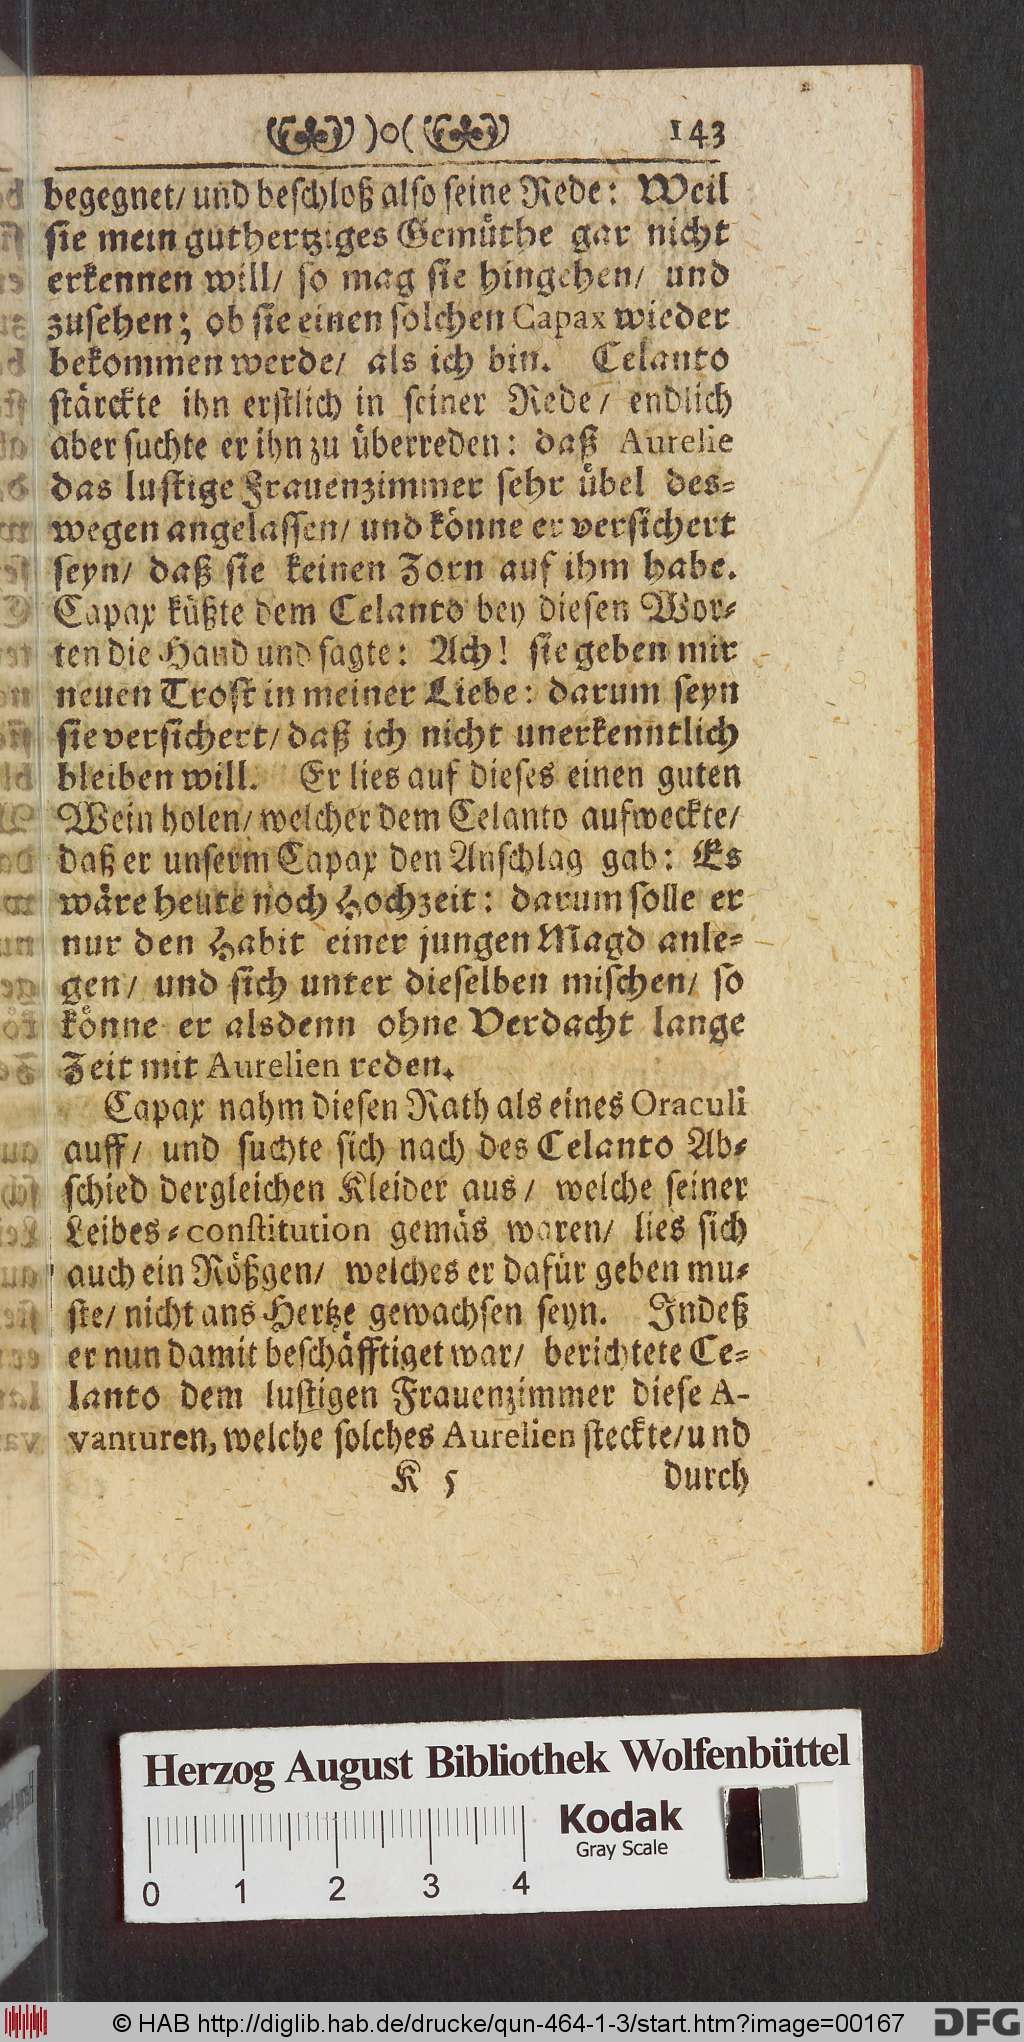 )o( 143
begegnet/ und beschloß also seine Rede: Weil
sie mein guthertziges Gemüthe gar nicht
erkennen will/ so mag sie hingehen/ und
zusehen; ob sie einen solchen Capax wieder
bekommen werde/ als ich bin. Celanto
stärckte ihn erstlich in seiner Rede/ endlich
aber suchte er ihn zu überreden: daß Aurelie
das lustige Frauenzimmer sehr übel des-
wegen angelassen/ und könne er versichert
seyn/ daß sie keinen Zorn auf ihm habe.
Capax küßte dem Celanto bey diesen Wor-
ten die Hand und sagte: Ach! sie geben mir
neuen Trost in meiner Liebe: darum seyn
sie versichert/ daß ich nicht unerkenntlich
bleiben will. Er lies auf dieses einen guten
Wein holen/ welcher dem Celanto aufweckte/
daß er unserm Capax den Anschlag gab: Es
wäre heute noch Hochzeit: darum solle er
nur den Habit einer jungen Magd anle-
gen/ und sich unter dieselben mischen/ so
könne er alsdenn ohne Verdacht lange
Zeit mit Aurelien reden.
Capax nahm diesen Rath als eines Oraculi
auff/ und suchte sich nach des Celanto Ab-
schied dergleichen Kleider aus/ welche seiner
Leibes-constitution gemäs waren/ lies sich
auch ein Rößgen/ welches er dafür geben mu-
ste/ nicht ans Hertze gewachsen seyn. Indeß
er nun damit beschäfftiget war/ berichtete Ce-
lanto dem lustigen Frauenzimmer diese A-
vanturen, welche solches Aurelien steckte/ und
K 5 durch
Herzog August Bibliothek Wolfenbüttel
Kodak
Gray Scale
0 1 2 3 4
© HAB http://diglib.hab.de/drucke/qun-464-1-3/start.htm?image=00167 DFG